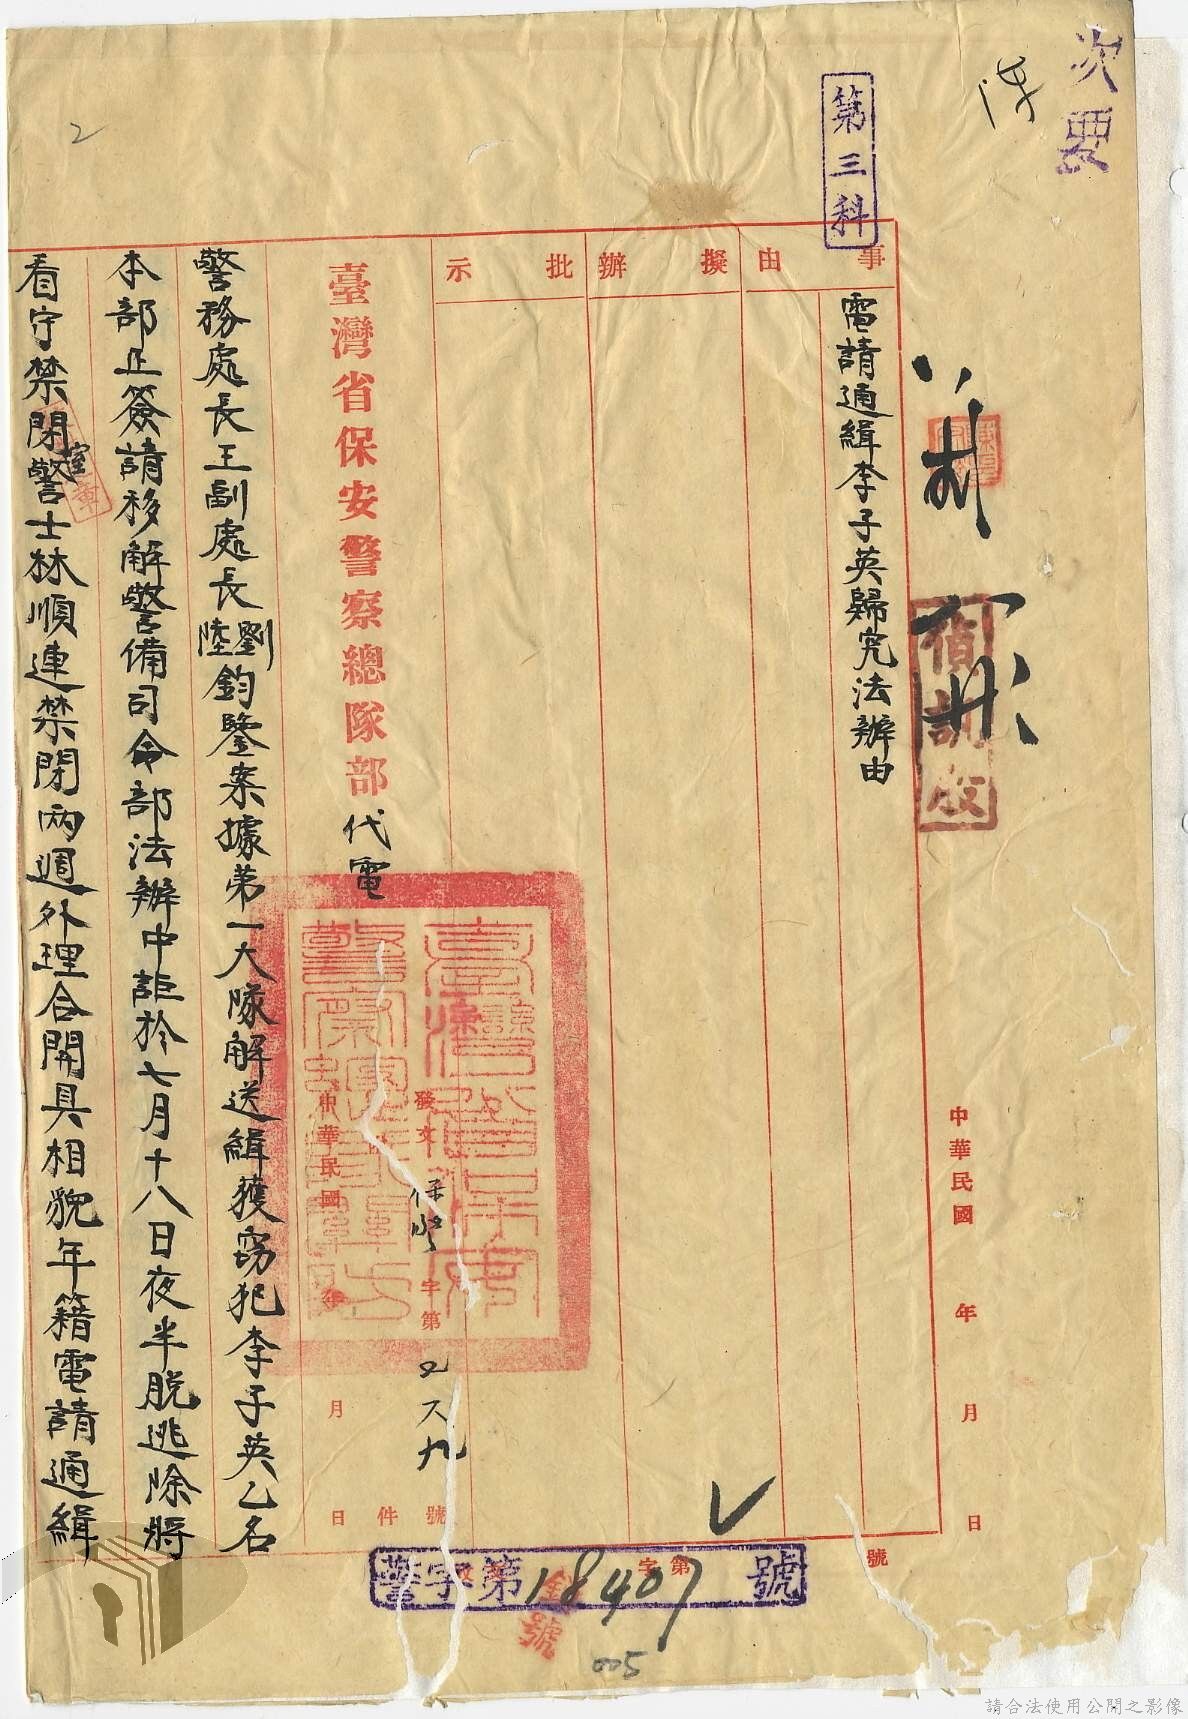 次要
第三科
事由
擬辦
批示
電請通緝李子英歸究法辦由
偵訊股
中華民國 年 月 日
號
臺灣省保安警察總隊部代電
發文 保警 字第 號
中華民國 年 月 日
件
警務處長王副處長劉陸鈞鑒案據第一大隊解送緝獲竊犯李子英乙名
本部正簽請移解警備司令部法辦中詎於七月十八日夜半脫逃除將
看守禁閉室警士林順連禁閉兩週外理合開具相貌年籍電請通緝
警字第18407號
字第
005
2
請合法使用公開之影像